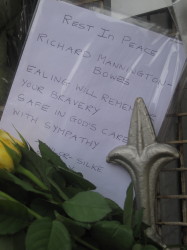 REST IN PEACE
RICHARD MANNINGTON-
BOWES
EALING WILL REMEMBER
YOUR BRAVERY
SAFE IN GODS CARE
WITH SYMPATHY